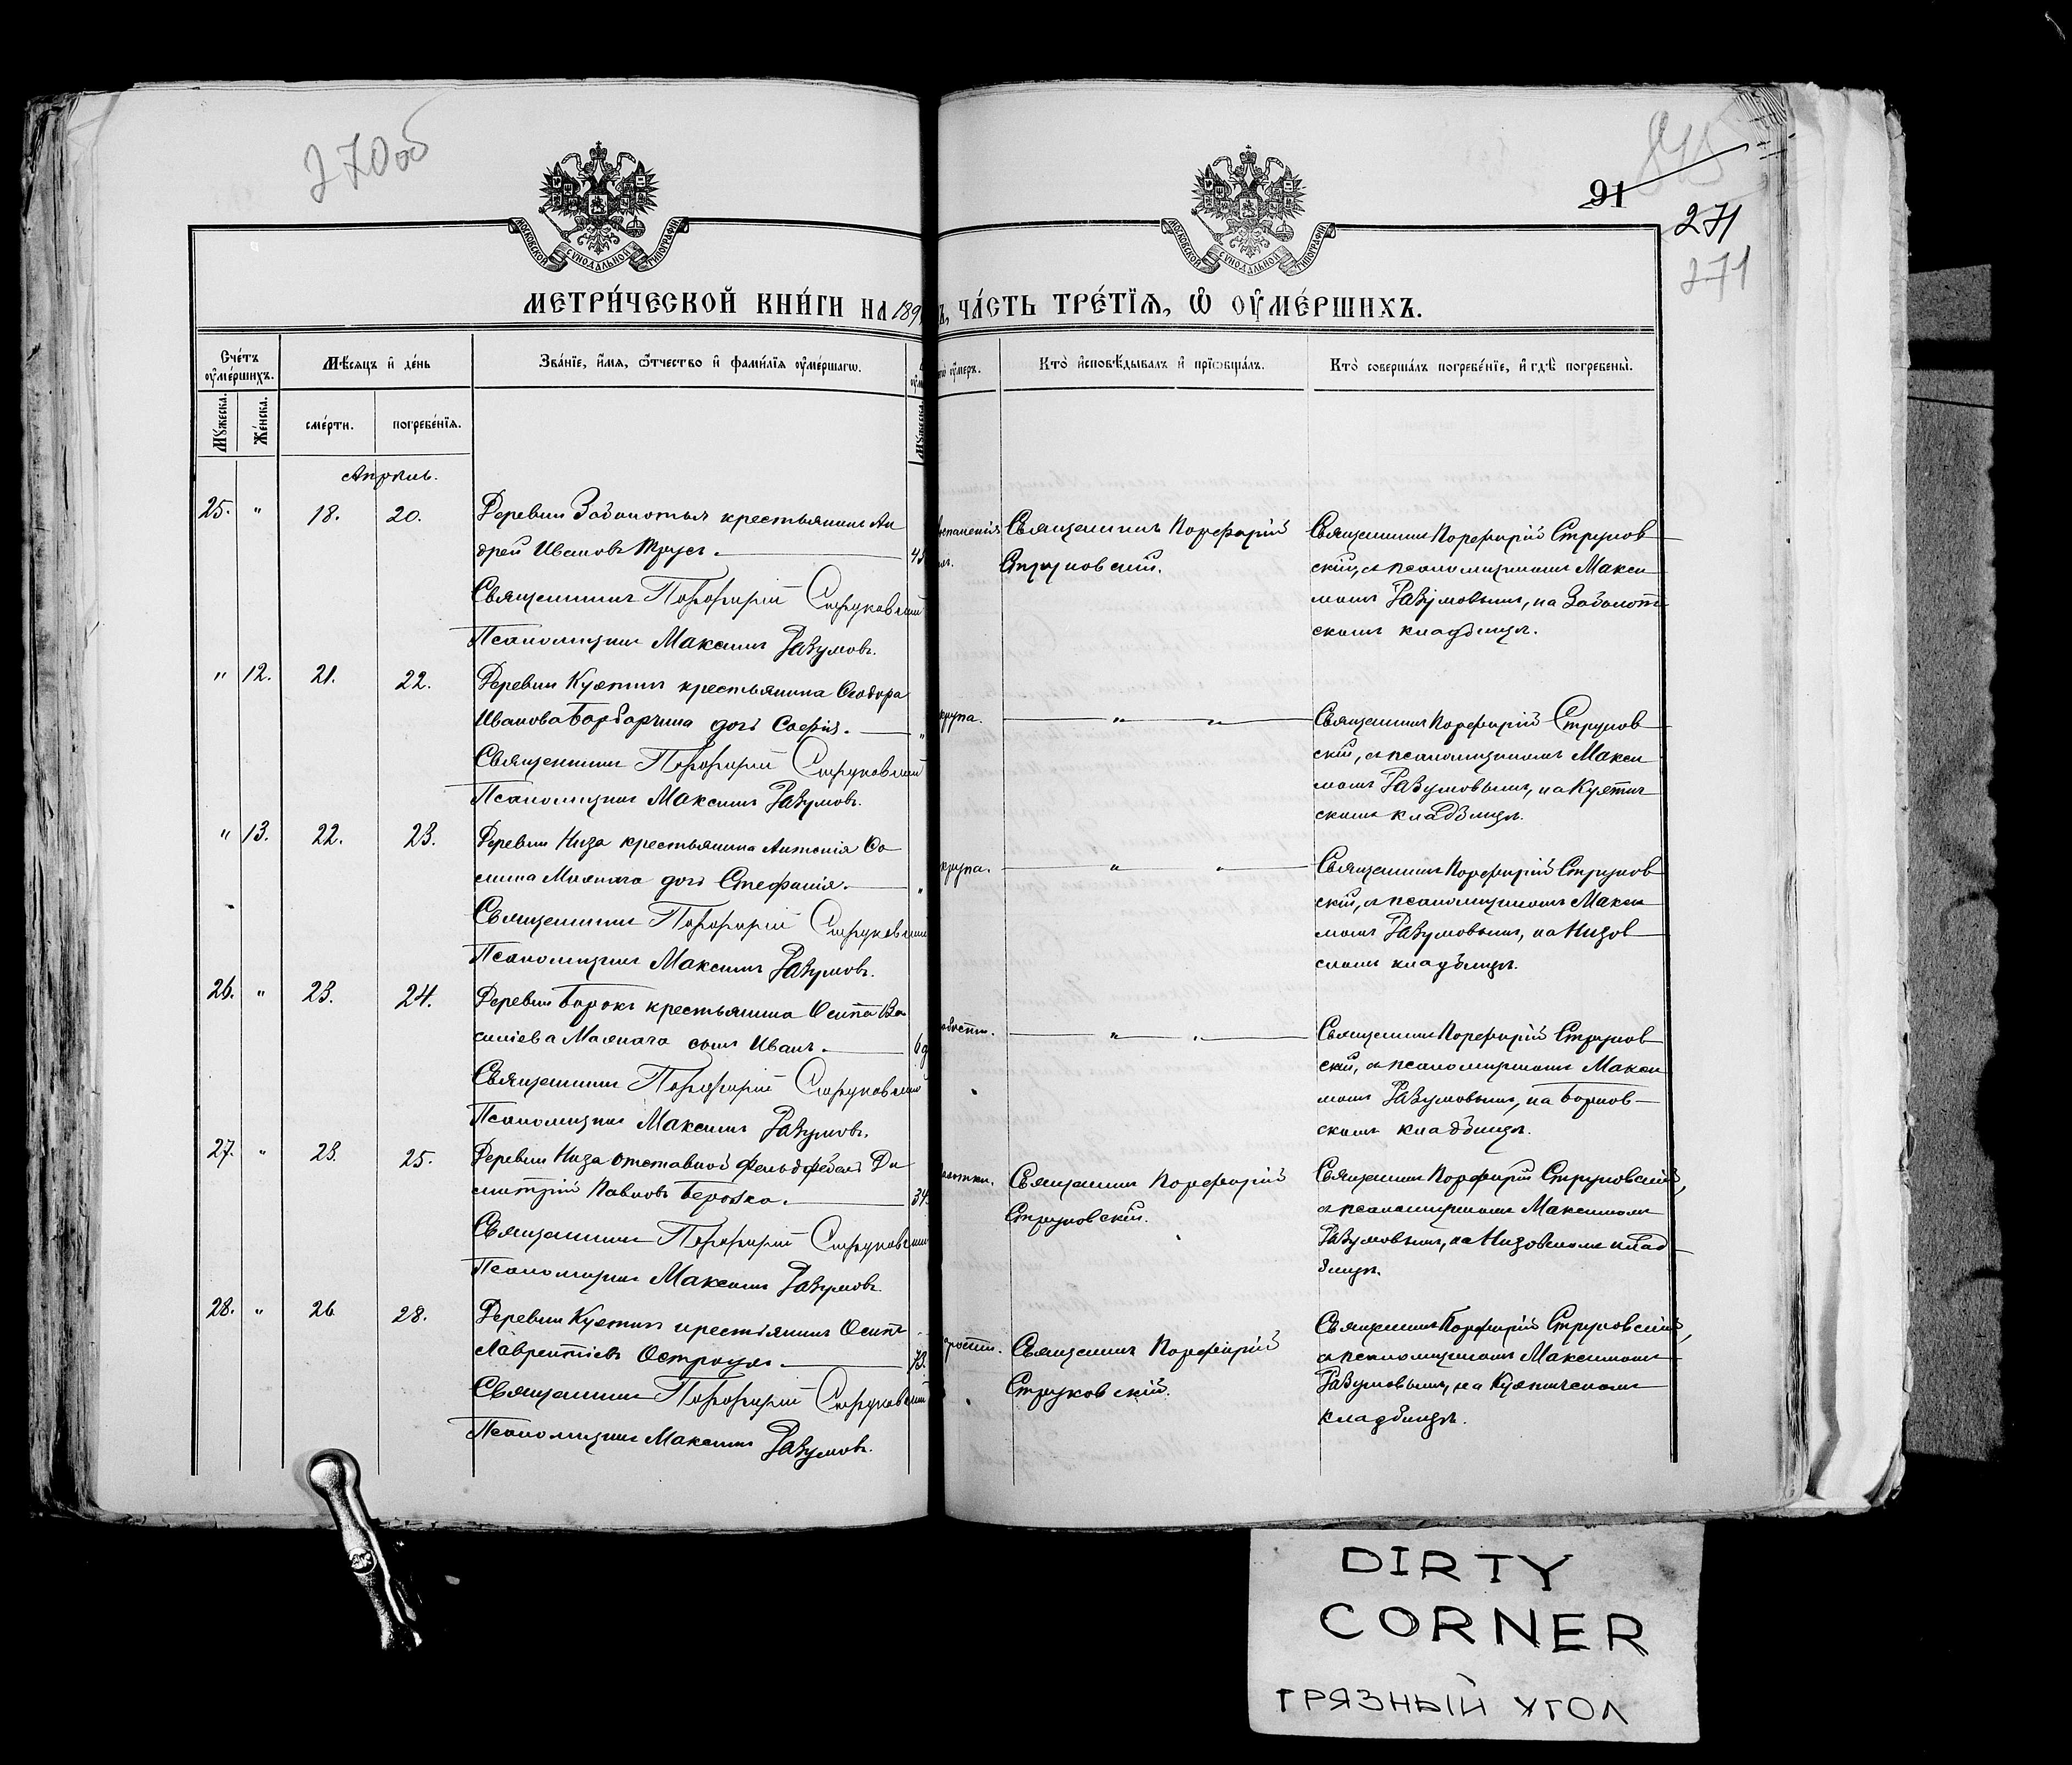 270 об
91
271
271
МОСКОВСКОЙ СѴНОДАЛЬНОЙ ТИПОГРАФІИ
МОСКОВСКОЙ СѴНОДАЛЬНОЙ ТИПОГРАФІИ
МЕТРИ́ЧЕСКОЙ КНИ́ГИ НА 189
Ъ, ЧА́СТЬ ТРЕ́ТЇѦ, Ѡ ОУ҆МЕ́РШИХЪ.
Сче́тъ оу҆ме́ршихъ.
Мѣ́сяцъ и҆ де́нь
Зва́нїе, и҆́мя, ѻ҆́тчество и҆ фами́лїя оу҆ме́ршагѡ.
оу҆́меръ.
Кто̀ и҆сповѣ́дывалъ и҆ прїѡбща́лъ.
Кто̀ соверша́лъ погребе́нїе, и҆ гдѣ̀ погребены̀.
Мꙋ́жеска.
Же́нска.
сме́рти.
погребе́нїя.
Мꙋ́жеска.
Апрѣль.
25. " 18. 20. Деревни Заболотья крестьянинъ Ан
дрей Ивановъ Трусъ. 45
Священникъ Порфирій Струковскій
Псаломщикъ Максимъ Разумовъ.
Священникъ Порфирій
Струковскій.
Священникъ Порфирій Струков
скій, съ псаломщикомъ Макси
момъ Разумовымъ, на Заболот
скомъ кладбищѣ.
" 12. 21. 22. Деревни Куятичъ крестьянина Ѳеодора
Иванова Барбарчика дочь Софія. "
Священникъ Порфирій Струковскій
Псаломщикъ Максимъ Разумовъ.
крупа. " "
Священникъ Порфирій Струков
скій, съ псаломщикомъ Макси
момъ Разумовымъ, на Куятич
скомъ кладбищѣ.
" 13. 22. 23. Деревни Низа крестьянина Антонія Со
Маякага дочь Стефанія. "
Священникъ Порфирій Струковскій
Псаломщикъ Максимъ Разумовъ.
крупа. " "
Священникъ Порфирій Струков
скій, съ псаломщикомъ Макси
момъ Разумовымъ, на Низов
скомъ кладбищѣ.
26. " 23. 24. Деревни Борокъ крестьянина Осипа Ва
силіева Маякага сынъ Иванъ. 6д
Священникъ Порфирій Струковскій
Псаломщикъ Максимъ Разумовъ.
" "
Священникъ Порфирій Струков
скій, съ псаломщикомъ Макси
момъ Разумовымъ, на Борков
скомъ кладбищѣ.
27. " 23. 25. Деревни Низа отставной фельдфебель Ди
митрій Павловъ Бережко. 34
Священникъ Порфирій Струковскій
Псаломщикъ Максимъ Разумовъ
Священникъ Порфирій
Струковскій.
Священникъ Порфирій Струковскій,
съ псаломщикомъ Максимомъ
Разумовымъ, на Низовскомъ клад
бищѣ.
28. " 26 28. Деревни Куятичъ крестьянинъ Осипъ
Лаврентіевъ Остроухъ. 73.
Священникъ Порфирій Струковскій
Псаломщикъ Максимъ Разумовъ.
Священникъ Порфирій
Струковскій.
Священникъ Порфирій Струковскій,
съ псаломщикомъ Максимомъ
Разумовымъ, на Куятичскомъ
кладбищѣ.
DIRTY
CORNER
ГРЯЗНЫЙ УГОЛ